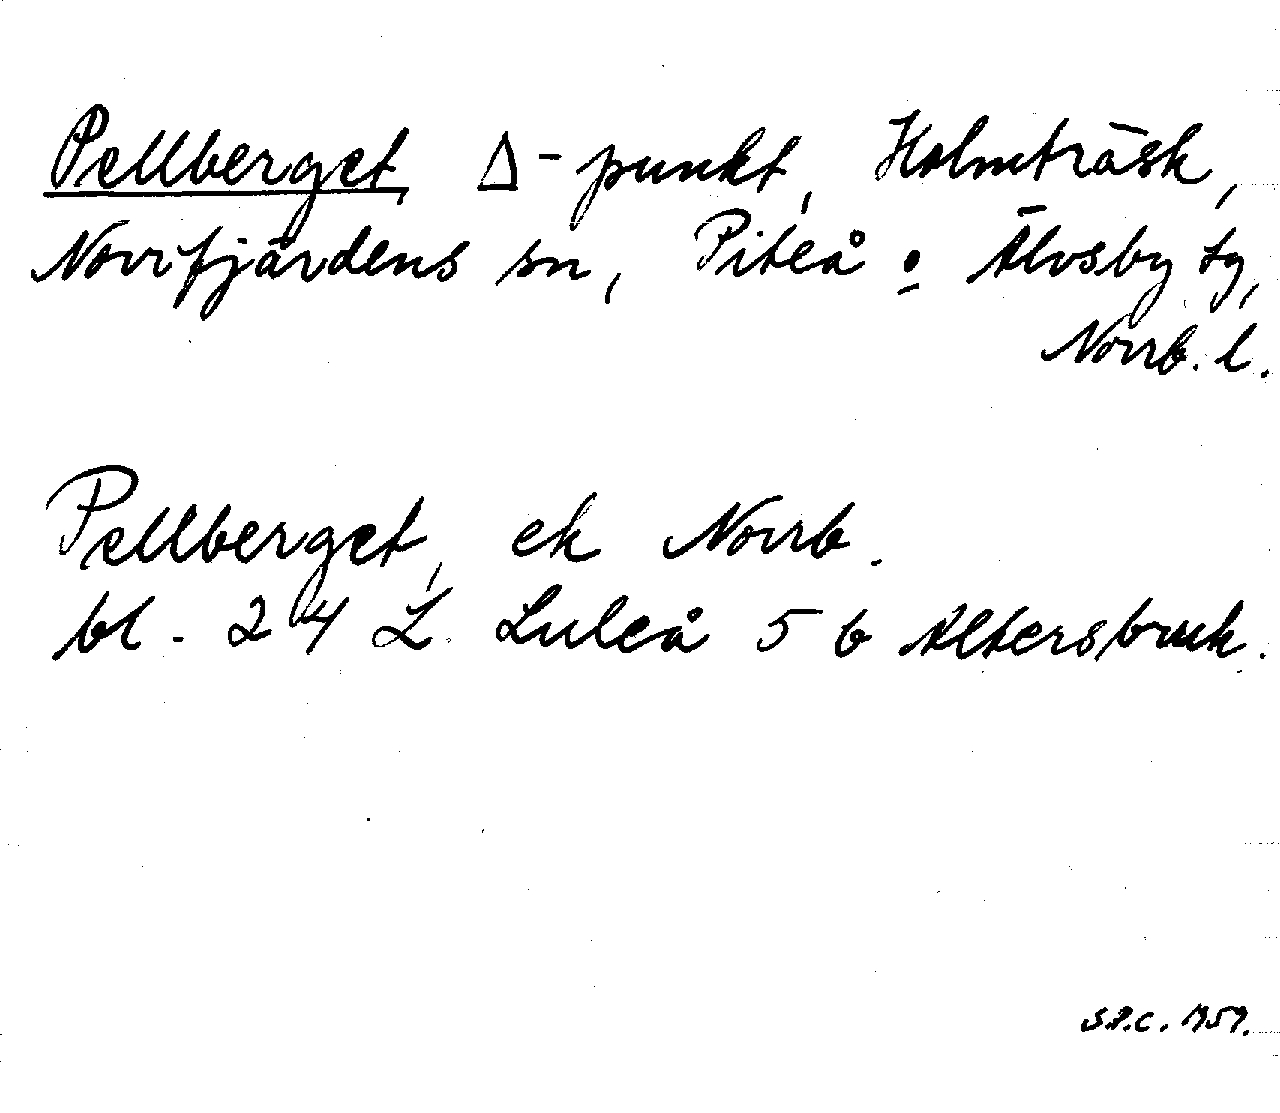 Pellberget, Δ-punkt, Holmträsk,
Norrfjärdens sn, Piteå o Älvsby tg,
Norrb. l.
Pellberget, ek Norrb.
bl. 24 L Luleå 5 b Altersbruk.
S.P.C. 1959.